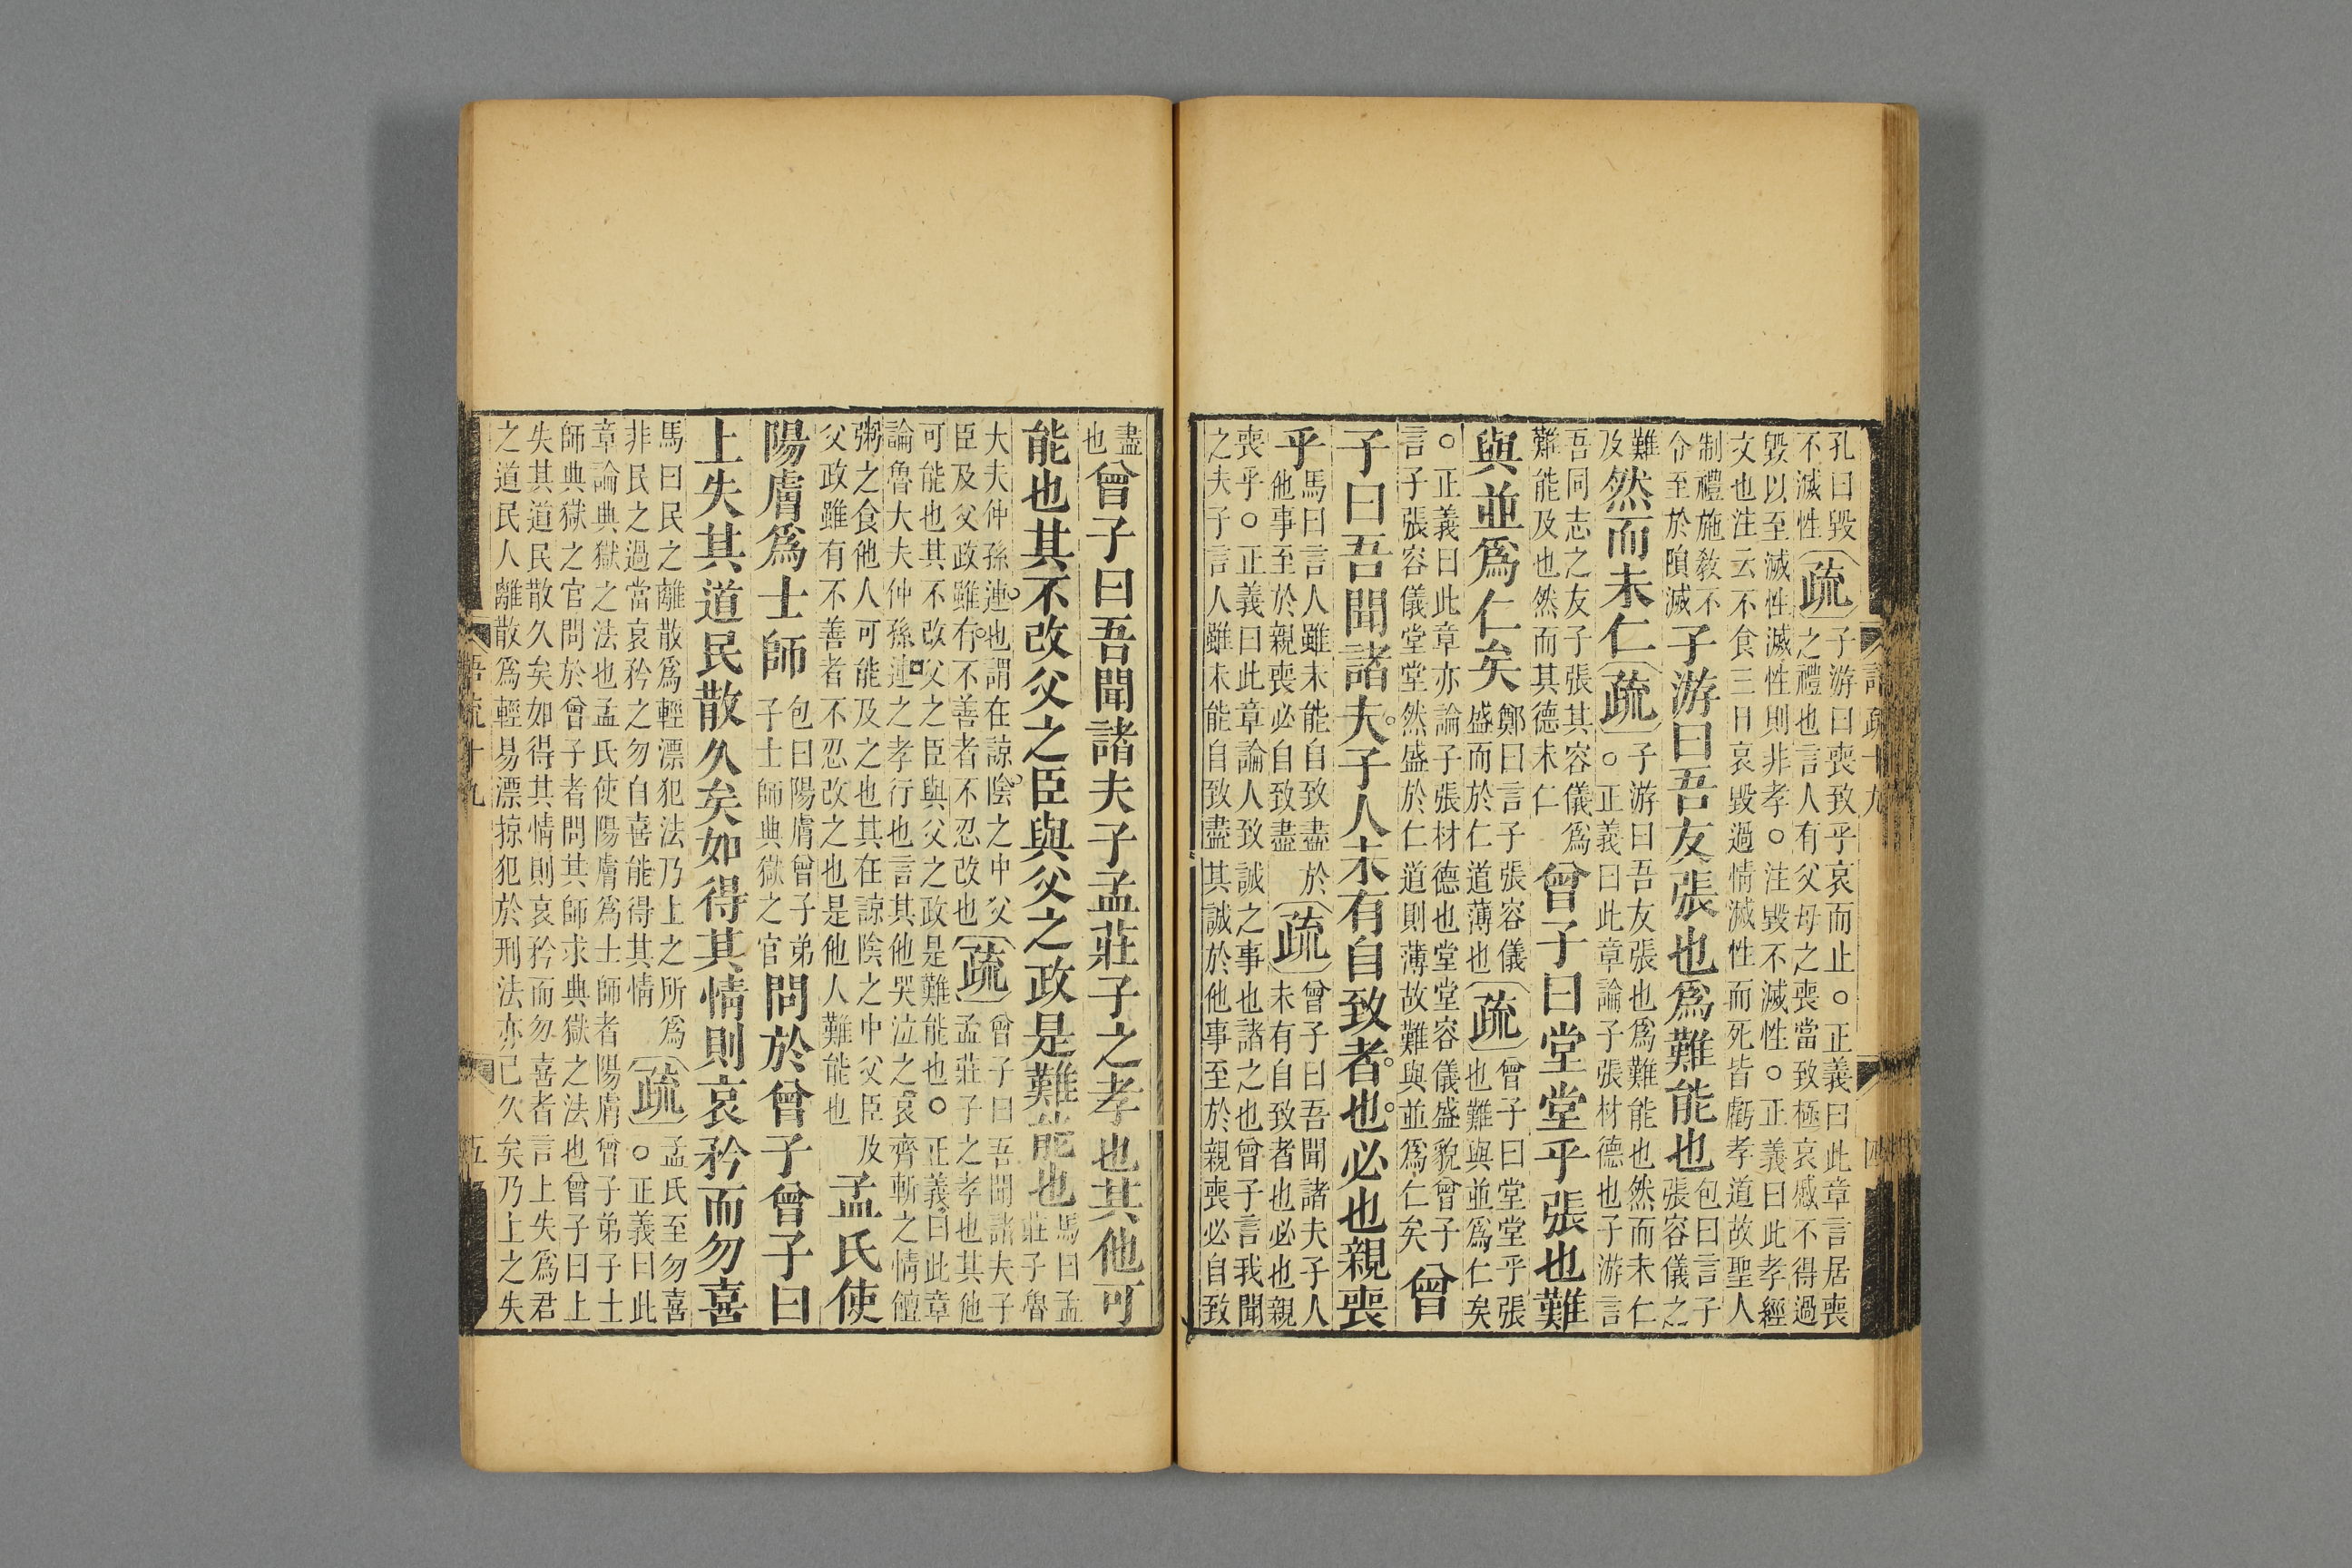 孔曰毀不滅性疏子游曰喪致乎哀而止○正義曰此章言居喪之禮也言人有父母之喪當致極哀慼不得過
毀以至滅性滅性則非孝○注毀不滅性○正義曰此孝經文也注云不食三日哀毀過情滅性而死皆虧孝道故聖人
制禮施敎不令至於隕滅子游曰吾友張也爲難能也包曰言子張容儀之
難及然而未仁疏子游曰吾友張也爲難能也然而未仁○正義曰此章論子張材德也子游言
吾同志之友子張其容儀爲難能及也然而其德未仁曾子曰堂堂乎張也難
與並爲仁矣鄭曰言子張容儀盛而於仁道薄也疏曾子曰堂堂乎張也難與並爲仁矣
○正義曰此章亦論子張材德也堂堂容儀盛貌曾子言子張容儀堂堂然盛於仁道則薄故難與並爲仁矣曾
子曰吾聞諸夫子人未有自致者也必也親喪
乎馬曰言人雖未能自致盡於他事至於親喪必自致盡疏曾子曰吾聞諸夫子人未有自致者也必也親
喪乎○正義曰此章論人致誠之事也諸之也曾子言我聞之夫子言人雖未能自致盡其誠於他事至於親喪必自致
盡也曾子曰吾聞諸夫子孟莊子之孝也其他可
能也其不改父之臣與父之政是難能也馬曰孟莊子魯
大夫仲孫連也謂在諒陰之中父臣及父政雖有不善者不忍改也疏曾子曰吾聞諸夫子孟莊子之孝也其他
可能也其不改父之臣與父之政是難能也○正義曰此章論魯大夫仲孫連之孝行也言其他哭泣之哀齊斬之情饘
粥之食他人可能及之也其在諒陰之中父臣及父政雖有不善者不忍改之也是他人難能也孟氏使
陽膚爲士師包曰陽膚曾子弟子士師典獄之官問於曾子曾子曰
上失其道民散久矣如得其情則哀矜而勿喜
馬曰民之離散爲輕漂犯法乃上之所爲非民之過當哀矜之勿自喜能得其情疏孟氏至勿喜○正義曰此
章論典獄之法也孟氏使陽膚爲士師者陽膚曾子弟子士師典獄之官問於曾子者問其師求典獄之法也曾子曰上
失其道民散久矣如得其情則哀矜而勿喜者言上失爲君之道民人離散爲輕易漂掠犯於刑法亦已久矣乃上之失
語疏十九
五